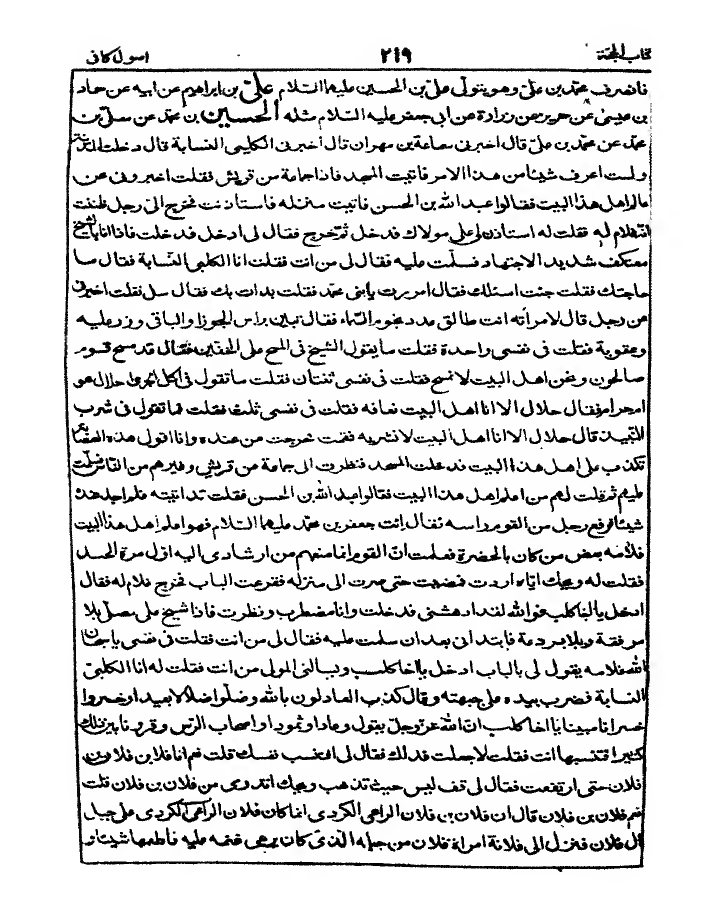 كتاب الحجة ٢٤٩ اسول كافى
فانصرف محمد بن على وهو يتولى على بن الحسين عليهما السلام على بن ابراهيم عن ابيه عن حماد
بن عيسى عن حريز عن زرارة عن ابى جعفر عليه السلام مثله الحسين بن محمد عن معلى بن
محمد عن محمد بن على قال اخبرنى سماعة بن مهران قال اخبرنى الكلبى النسابة قال دخلت المدينة
ولست اعرف شيئا من هذا الامر فاتيت المسجد فاذا جماعة من قريش فقلت اخبرونى عن
عالم اهل هذا البيت فقالوا عبد الله بن الحسن فاتيت منزله فاستاذنت فخرج الى رجل ظننت
انه غلام له فقلت له استاذن لى على مولاك فدخل ثم خرج فقال لى ادخل فدخلت فاذا انا بشيخ
معتكف شديد الاجتهاد فسلمت عليه فقال لى من انت فقلت انا الكلبى النسابة فقال ما
حاجتك فقلت جئت اسئلك فقال امررت بابنى محمد فقلت بدات بك فقال سل فقلت اخبرنى
عن رجل قال لامرأته انت طالق عدد نجوم السماء فقال تبين براس الجوزا والباقى وزر عليه
وعقوبة فقلت فى نفسى واحدة فقلت ما يقول الشيخ فى المسح على الخفين فقال قد مسح قوم
صالحون ونحن اهل البيت لا نمسح فقلت فى نفسى ثنتان فقلت ما تقول فى اكل الجرى احلال هو
ام حرام فقال حلال الا انا اهل البيت نعافه فقلت فى نفسى ثلث فقلت فما تقول فى شرب
النبيذ قال حلال الا انا اهل البيت لا نشربه فقمت فخرجت من عنده وانا اقول هذه العصابة
تكذب على اهل هذا البيت فدخلت المسجد فنظرت الى جماعة من قريش وغيرهم من الناس فسلمت
عليهم ثم قلت لهم من اعلم اهل هذا البيت فقالوا عبد الله بن الحسن فقلت قد اتيته فلم اجد عنده
شيئا فرفع رجل من القوم راسه فقال ائت جعفر بن محمد عليهما السلام فهو اعلم اهل هذا البيت
فلامه بعض من كان بالحضرة فعلمت ان القوم انما منعهم من ارشادى اليه اول مرة الحسد
فقلت له ويحك اياه اردت فمضيت حتى صرت الى منزله فقرعت الباب فخرج غلام له فقال
ادخل يا اخا كلب فوالله لقد ادهشنى فدخلت وانا مضطرب ونظرت فاذا شيخ على مصلى بلا
مرفقة ولا بردعة فابتدانى بعد ان سلمت عليه فقال لى من انت فقلت فى نفسى يا سبحان
الله غلامه يقول لى بالباب ادخل يا اخا كلب ويسالنى المولى من انت فقلت له انا الكلبى
النسابة فضرب بيده على جبهته وقال كذب العادلون بالله وضلوا ضلالا بعيدا وخسروا
خسرانا مبينا يا اخا كلب ان الله عز وجل يقول وعادا وثمود او اصحاب الرس وقرونا بين ذلك
كثيرا افتنسبها انت فقلت لا جعلت فداك فقال لى افتنسب نفسك قلت نعم انا فلان بن فلان بن
فلان حتى ارتفعت فقال لى قف ليس حيث تذهب ويحك اتدرى من فلان بن فلان قلت
نعم فلان بن فلان قال ان فلان بن فلان الراعى الكردى انما كان فلان الراعى الكردى على جبل
آل فلان فنزل الى فلانة امراة فلان من جبله الذى كان يرعى غنمه عليه فاطعمها شيئا و